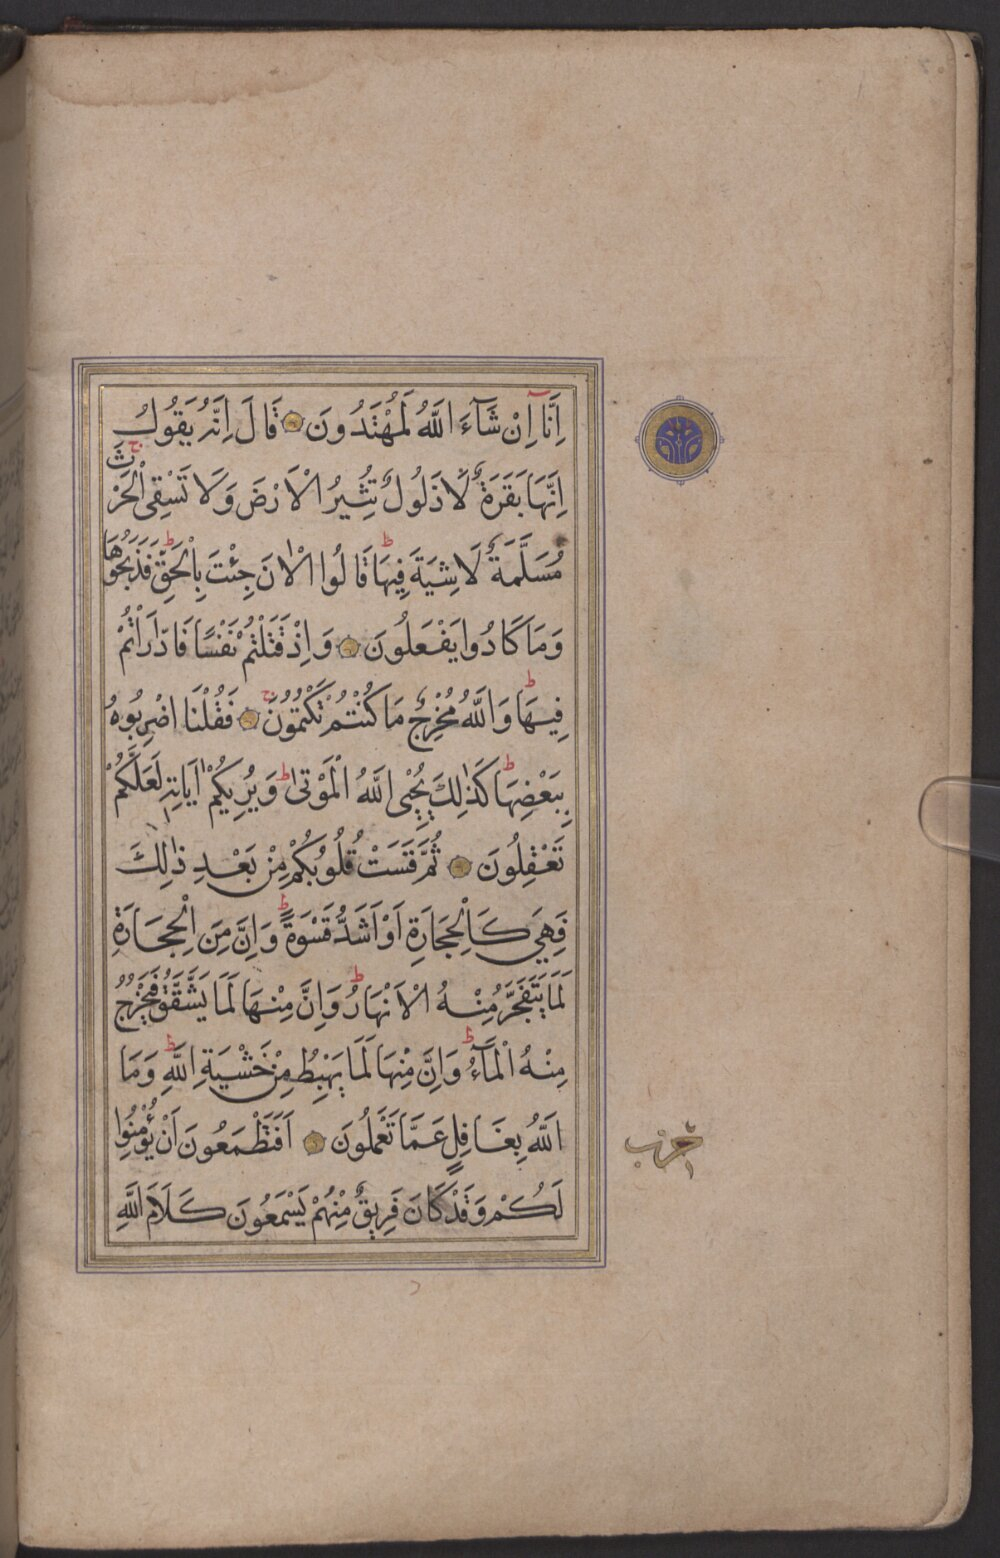 اِنَّٓا اِنْ شَٓاءَ اللّٰهُ لَمُهْتَدُونَ قَالَ اِنَّهُ يَقُولُ
اِنَّهَا بَقَرَةٌ لَا ذَلُولٌ تُثِيرُ الْاَرْضَ وَلَا تَسْقِى الْحَرْثَ ج
مُسَلَّمَةٌ لَا شِيَةَ فِيهَا ط قَالُوا الْاٰنَ جِئْتَ بِالْحَقِّ ط فَذَبَحُوهَا
وَمَا كَادُوا يَفْعَلُونَ وَاِذْ قَتَلْتُمْ نَفْسًا فَادّٰرَاْتُمْ
فِيهَا ط وَاللّٰهُ مُخْرِجٌ مَا كُنْتُمْ تَكْتُمُونَ ج فَقُلْنَا اضْرِبُوهُ
بِبَعْضِهَا ط كَذٰلِكَ يُحْيِى اللّٰهُ الْمَوْتٰى ط وَيُرِيكُمْ اٰيَاتِهِ لَعَلَّكُمْ
تَعْقِلُونَ ثُمَّ قَسَتْ قُلُوبُكُمْ مِنْ بَعْدِ ذٰلِكَ
فَهِىَ كَالْحِجَارَةِ اَوْ اَشَدُّ قَسْوَةً ط وَاِنَّ مِنَ الْحِجَارَةِ
لَمَا يَتَفَجَّرُ مِنْهُ الْاَنْهَارُ ط وَاِنَّ مِنْهَا لَمَا يَشَّقَّقُ فَيَخْرُجُ
مِنْهُ الْمَٓاءُ ط وَاِنَّ مِنْهَا لَمَا يَهْبِطُ مِنْ خَشْيَةِ اللّٰهِ ط وَمَا
اللّٰهُ بِغَافِلٍ عَمَّا تَعْمَلُونَ اَفَتَطْمَعُونَ اَنْ يُؤْمِنُوا
لَكُمْ وَقَدْ كَانَ فَرِيقٌ مِنْهُمْ يَسْمَعُونَ كَلَامَ اللّٰهِ
حزب